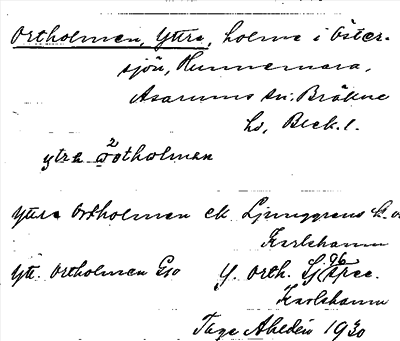 Ortholmen, Yttre, holme i Öster-
sjön, Hunnemara,
Asarums sn. Bräkne
hd, Blek. l.
ytra 2 otholman
Yttre Ortholmen ek Ljunggrens
Karlshamn
Ytt. Ortholmen Eso Y. Orth. Lj 96 spec.
Karlshamn
Tage Ahldén 1930